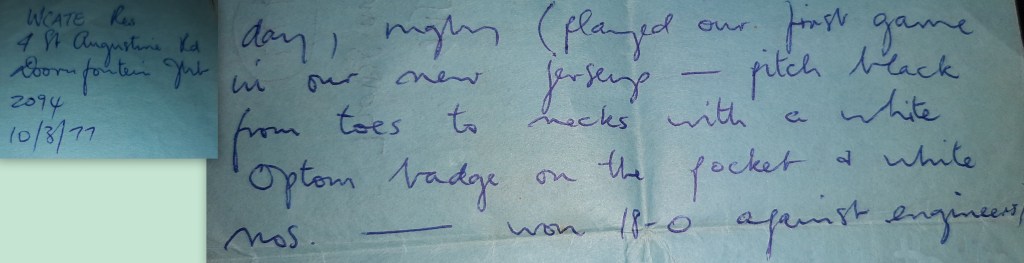 WCATE Res
4 St Augustine Rd
Doornfontein Jhb
2094
10/8/77
day, rugby (played our first game
in our new jerseys — pitch black
from toes to necks with a white
Optom badge on the pocket & white
nos. — won 18-0 against engineers,